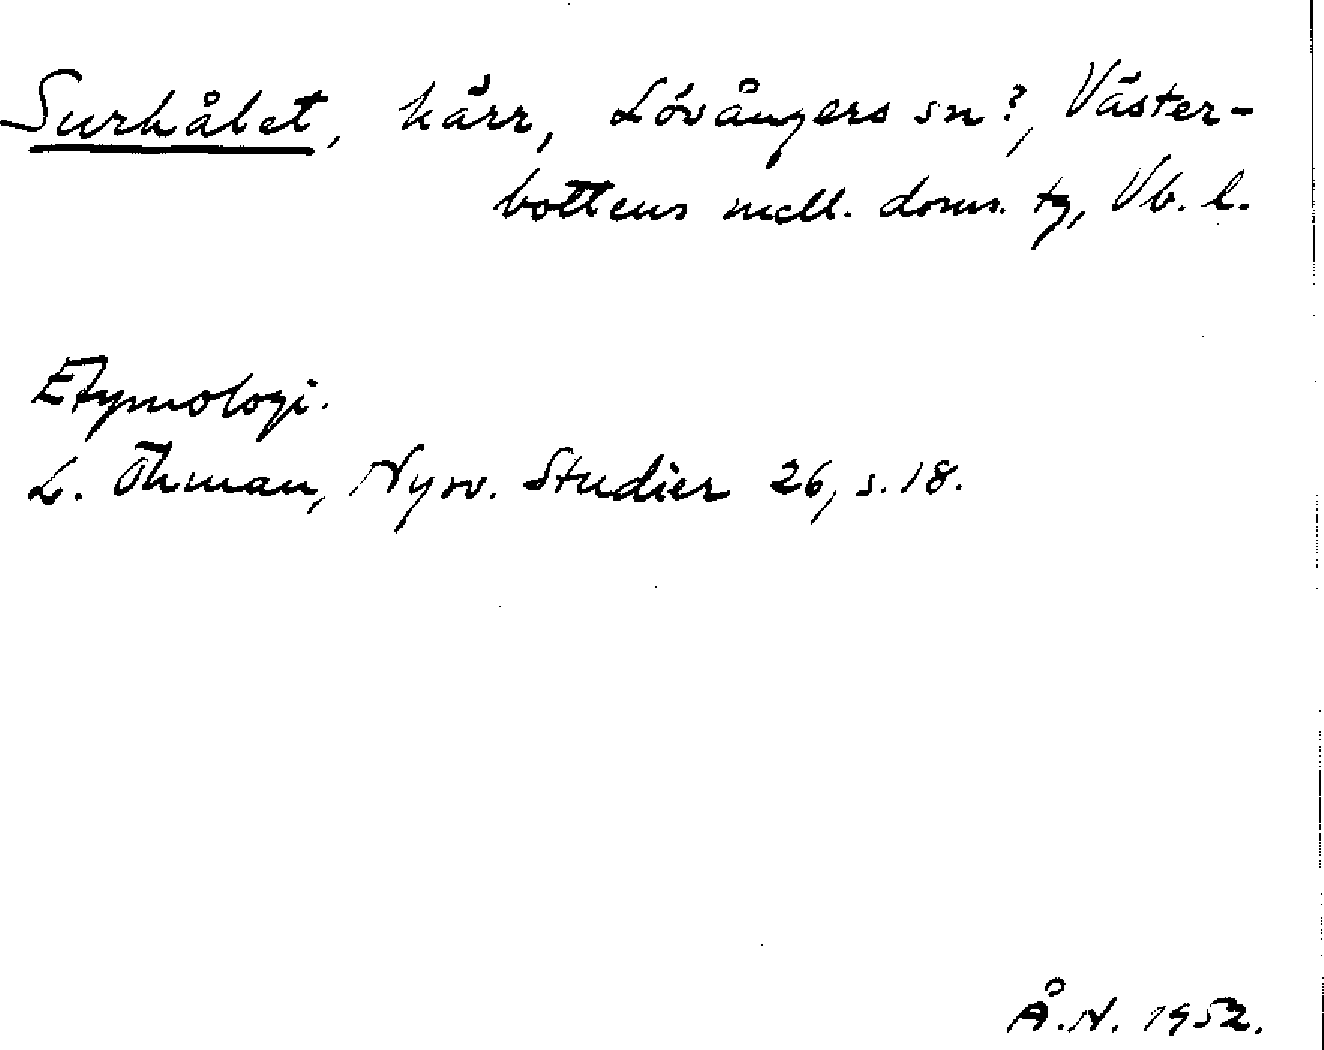 Surhålet, kärr, Lövångers sn?, Väster-
bottens mell. doms. tg, Vb. l.
Etymologi.
L. Öhman, Nysv. Studier 26, s. 18.
Å.N. 1952.